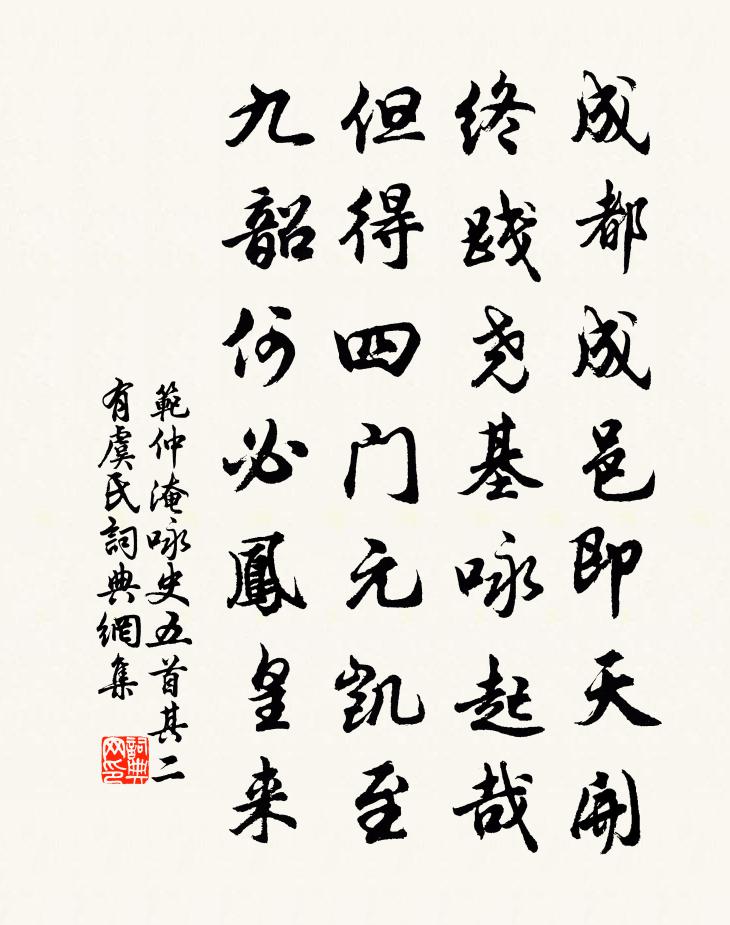 成都成邑即天開
終踐尭基咏起哉
但得四门元凱至
九韶何必鳳皇来
範仲淹咏史五首其二
有虞氏詞典網集
詞典网印